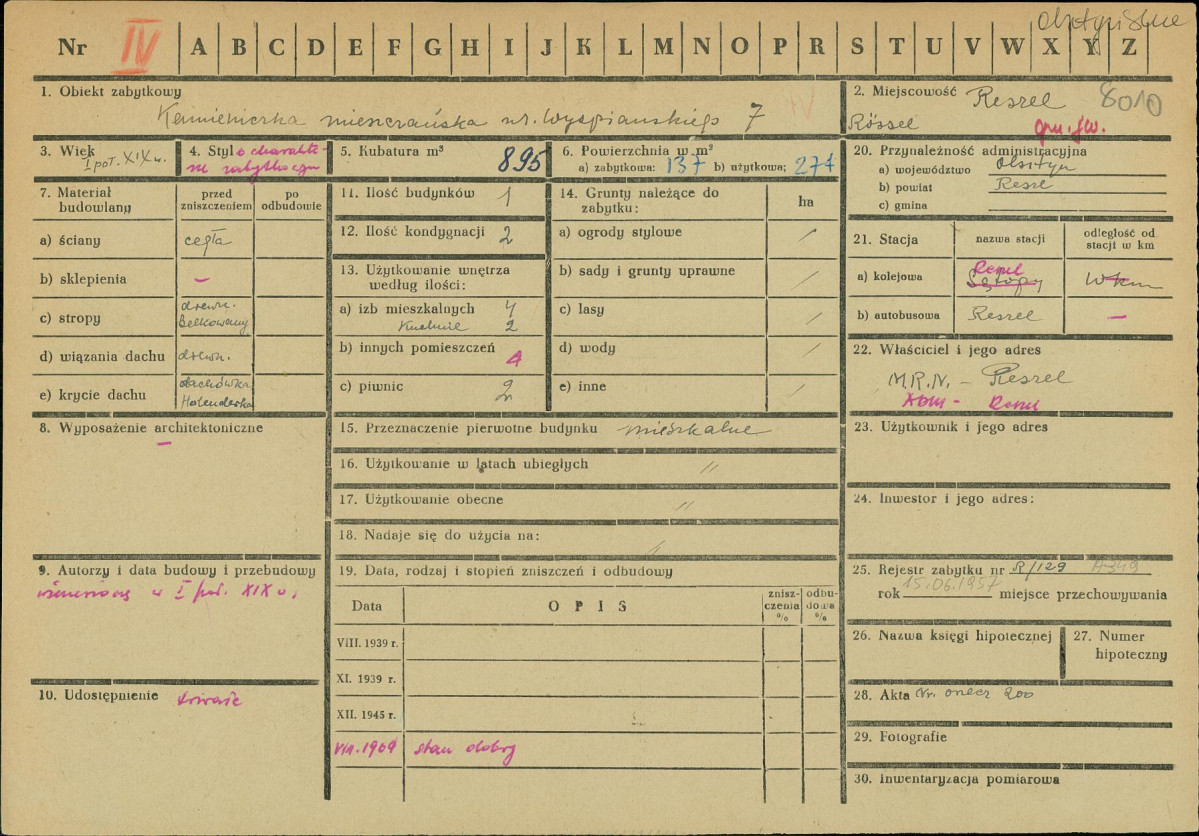 olsztyńskie
Nr IV A B C D E F G H I J K L M N O P R S T U V W X Y Z
1. Obiekt zabytkowy
Kamieniczka mieszczańska ul. Wyspiańskiego 7
IV
2. Miejscowość Reszel 8010
Rössel gm. łw.
3. Wiek
I poł. XIX w.
4. Styl o charakte-
rze zabytkowym
5. Kubatura m³
895
6. Powierzchnia w m²
a) zabytkowa: 137 b) użytkowa: 274
7. Materiał budowlany
przed zniszczeniem
po odbudowie
a) ściany cegła
b) sklepienia –
c) stropy drewn.
Belkowany
d) wiązania dachu drewn.
e) krycie dachu dachówka
Holenderka
8. Wyposażenie architektoniczne
–
9. Autorzy i data budowy i przebudowy
wzniesiony w I poł. XIX w.
10. Udostępnienie trwałe
11. Ilość budynków 1
12. Ilość kondygnacji 2
13. Użytkowanie wnętrza
według ilości:
a) izb mieszkalnych 4
Kuchnie 2
b) innych pomieszczeń 4
c) piwnic 2
14. Grunty należące do
zabytku:
ha
a) ogrody stylowe /
b) sady i grunty uprawne /
c) lasy /
d) wody /
e) inne /
15. Przeznaczenie pierwotne budynku mieszkalne
16. Użytkowanie w latach ubiegłych //
17. Użytkowanie obecne //
18. Nadaje się do użycia na: //
19. Data, rodzaj i stopień zniszczeń i odbudowy
Data
OPIS
znisz-
czenia
%
odbu-
dowa
%
VIII. 1939 r.
XI. 1939 r.
XII. 1945 r.
VIII. 1969 stan dobry
20. Przynależność administracyjna
a) województwo Olsztyn
b) powiat Reszel
c) gmina
21. Stacja
nazwa stacji
odległość od
stacji w km
a) kolejowa Reszel
Sątopy
w km
b) autobusowa Reszel –
22. Właściciel i jego adres
M.R.N. – Reszel
ADM – Reszel
23. Użytkownik i jego adres
24. Inwestor i jego adres:
25. Rejestr zabytku nr R/129 A-349
rok 15.06.1957 miejsce przechowywania
26. Nazwa księgi hipotecznej
27. Numer
hipoteczny
28. Akta Nr. onecz 200
29. Fotografie
30. Inwentaryzacja pomiarowa